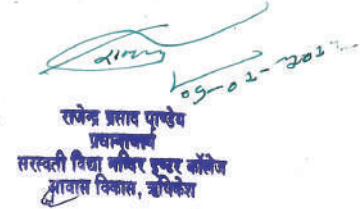 राजेन्द्र प्रसाद पाण्डेय
प्रधानाचार्य
सरस्वती विद्या मन्दिर इण्टर कॉलेज
आवास विकास, ऋषिकेश